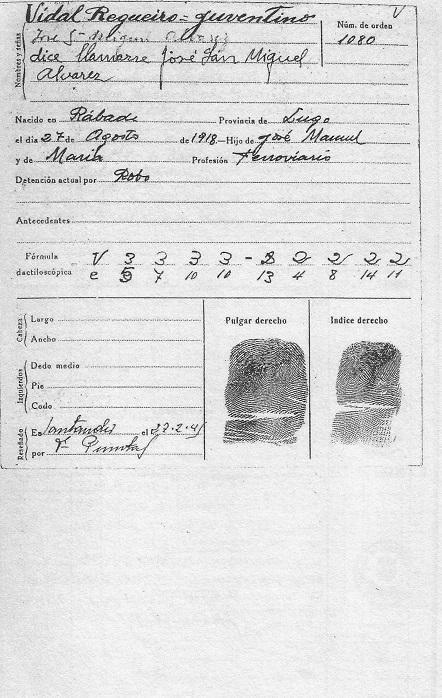 V
Vidal Regueiro = Juventino
Núm. de orden
1080
José S- Miguel Alvarez
dice llamarse José San Miguel
Alvarez
Nombres y señas
Nacido en Rábade Provincia de Lugo
el día 27 de Agosto de 1918.—Hijo de José Manuel
y de María Profesión Ferroviario
Detención actual por Robo
Antecedentes
Fórmula V 3 3 3 3 - 2 2 2 2 2
dactiloscópica e 5 7 10 10 13 4 8 14 11
Cabeza
Largo
Ancho
Izquierdos
Dedo medio
Pie
Codo
Reseñado
En Santander el 27-2-41
por
Pulgar derecho
Indice derecho